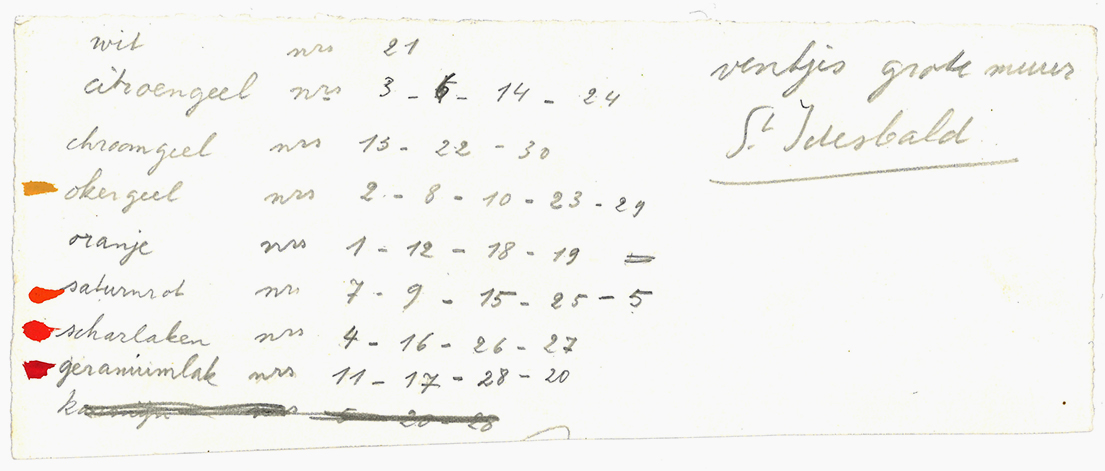 wit nrs 21
citroengeel nrs 3 - 6 - 14 - 24
chroomgeel nrs 13 - 22 - 30
okergeel nrs 2 - 8 - 10 - 23 - 29
oranje nrs 1 - 12 - 18 - 19
saturnrot nrs 7 - 9 - 15 - 25 - 5
scharlaken nrs 4 - 16 - 26 - 27
geraniumlak nrs 11 - 17 - 28 - 20
karmijn nrs 5 20 - 28
ventjes grote muur
St Idesbald